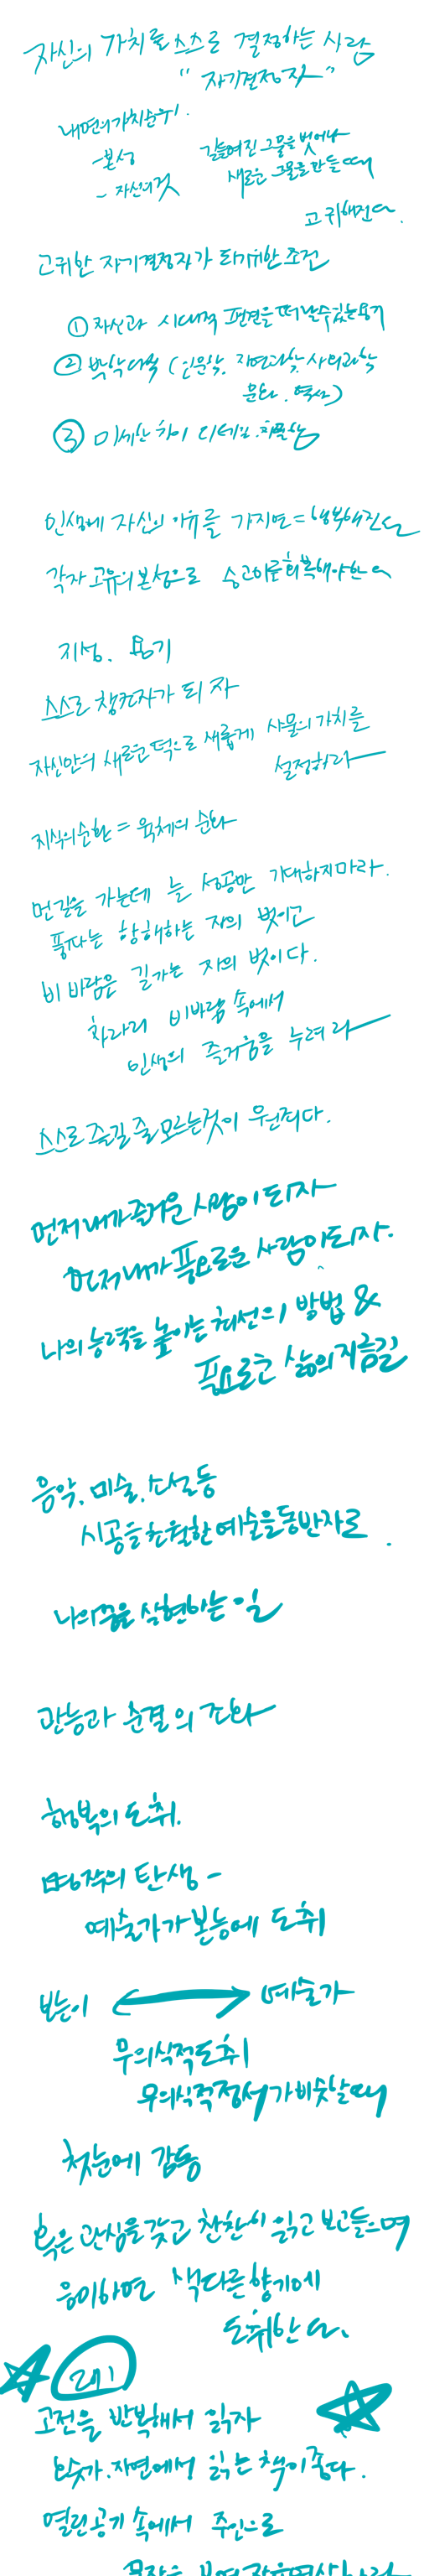 자신의 가치를 스스로 결정하는 사람
"자기결정자"
내면의 가치순위.
-본성
- 자신의 것
길들여진 그물을 벗어나
새로운 그물을 만들 때
고귀해진다.
고귀한 자기결정자가 되기위한 조건
① 자신과 시대적 편견을 떠날수있는 용기
② 박학다식 (인문학, 자연과학, 사회과학
문화, 역사)
③ 미세한 차이 디테일
인생에 자신의 이유를 가지면 = 행복해진다
각자 고유의 본성으로 숭고미를 회복해야한다
지성, 용기
스스로 창조자가 되자
자신안의 새로운 덕으로 새롭게 사물의 가치를
설정하라
지식의순환 = 육체의 순환
먼길을 가는데 늘 성공만 기대하지마라.
풍파는 항해하는 자의 벗이고
비 바람은 길가는 자의 벗이다.
차라리 비바람 속에서
인생의 즐거움을 누려라
스스로 즐길 줄 모르는것이 원죄다.
먼저 내가 즐거운 사람이 되자
먼저 내가 풍요로운 사람이 되자.
나의 능력을 높이는 최선의 방법 &
풍요로운 삶의 지름길
음악, 미술, 소설 등
시공을 초월한 예술을 동반자로.
나의 꿈을 실현하는 일
관능과 순결의 조화
행복의 도취.
명작의 탄생 -
예술가가 본능에 도취
보는이 ↔ 예술가
무의식적도취
무의식적정서가 비슷할때
첫눈에 감동
혹은 관심을 갖고 찬찬히 읽고 보고 들으며
음미하면 색다른 향기에
도취한다.
고전을 반복해서 읽자
숲가, 자연에서 읽는 책이 좋다.
열린공기 속에서 주인으로